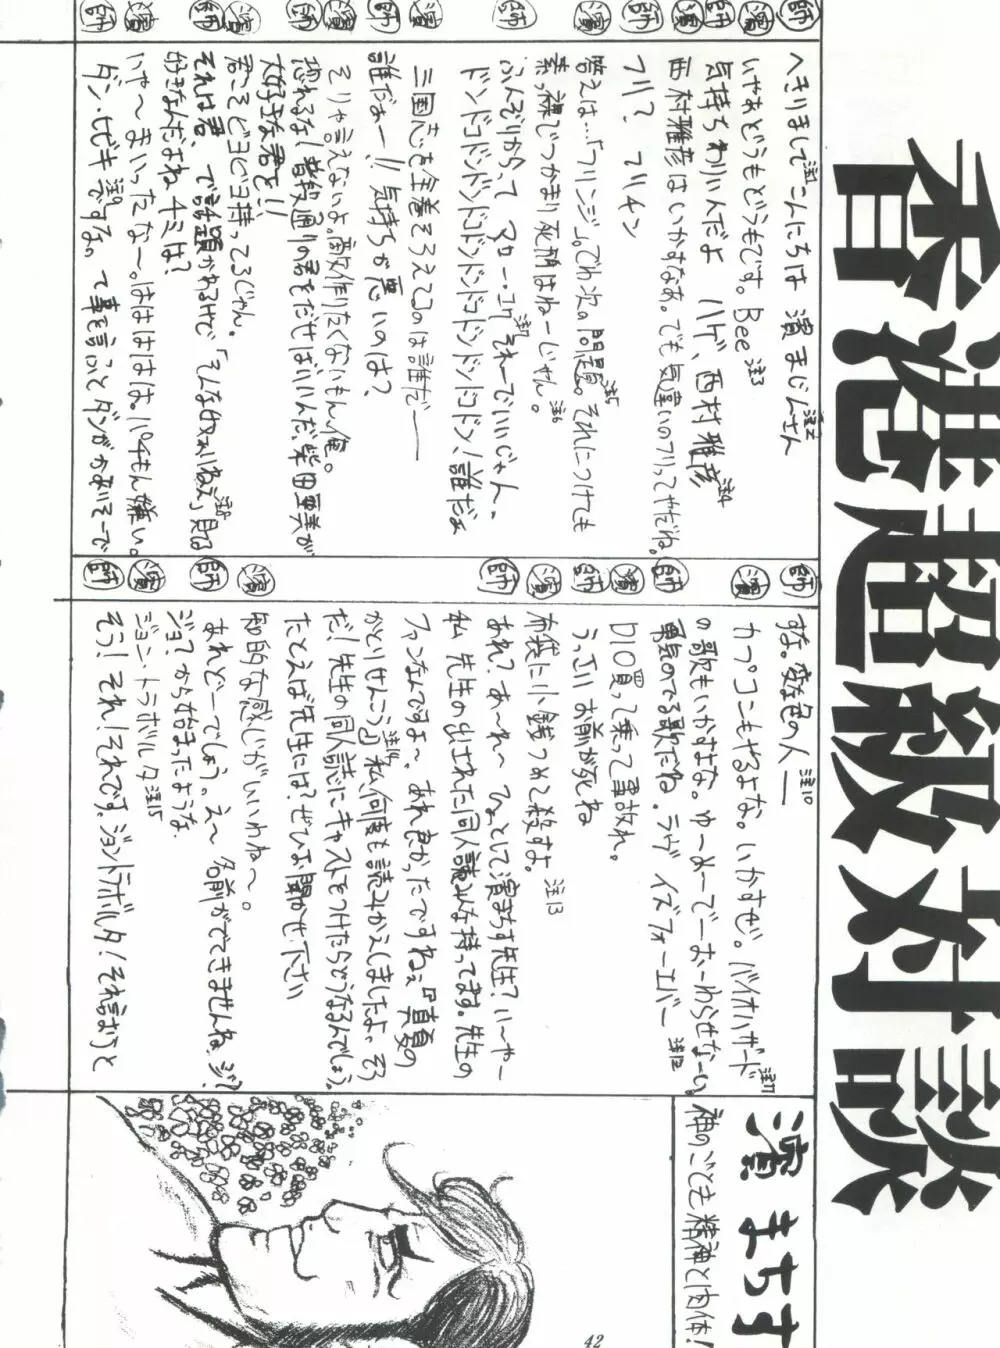 香港超級対談
師 へきりまして注1こんにちは 濱まじんさん注2
濱 いやあどうもどうもです。Bee注3
師 気持ちわりいんだよ ハゲ、西村雅彦注4
濱 西村雅彦はいかすなあ。でも気違いのフリってやだね。
師 フリ? でリチン
濱 答えは…「フリンジ」。でわ次の問題。注5それにつけても
素っ裸でつかまり死刑はねーじゃん。注6
師 ふんぞりかって マロー・コけ注7それーでいいじゃん、
ドンドコドンドンドコドンドンドコドンドンドコドン!誰だぁ
濱 三国志を全巻そろえてるのは誰だ――
師 誰だぁー!!気持ちが悪いのは?
濱 そりゃ言えないよ。敵作りたくないもん俺。
師 恐れるな!普段通りの君をだせばいいんだ、柴田亜美が
大好きな君を!!
濱 君こそビヨビヨ持ってるじゃん。
師 それは君、で話題かわるけで「そんなゆめぇりねぇ」見る注8
好きなんだよね チミは?
濱 いや〜まいったな〜。はははははは。パチもん嫌い。
師 ダン・ヒビキ注9ですな。って事を言ふとダンがかあいそーで
師 すな。変な色の人――注10
濱 カプコンもやるよな。いかすぜ。バイオハザード注11
の歌もいかすよな。ゆーめーでーおーわらせなーい
師 勇気のでる歌だね。ラヴ イズ フォーエバー注12
濱 DIO買って乗って事故れ。
師 うっさい お前が死ね
濱 布袋に小銭つめて殺すよ。注13
師 あれ?あ〜れ〜 ひょっとして濱まちす先生?い〜や―
私 先生の出された同人誌みんな持ってます。先生の
ファンなんですよ〜、あれ良かったですねぇ『真夏の
かとりせんこう』注14私、何度も読みかえしましたよ。そう
だ!先生の同人誌にキャストをつけたらどうなるんでしょう。
たとえば先生には?ぜひお聞かせ下さい
濱 知的な感じがいいわね〜。
師 あれどーでしょう。え〜 名前がでてきませんね、ジ?
ジョ?から始まったような
濱 ジョン・トラボルタ注15
師 そう!それ!それです。ジョントラボルタ!それ話すと
濱 まちす
神のごとき精神と肉体!
42